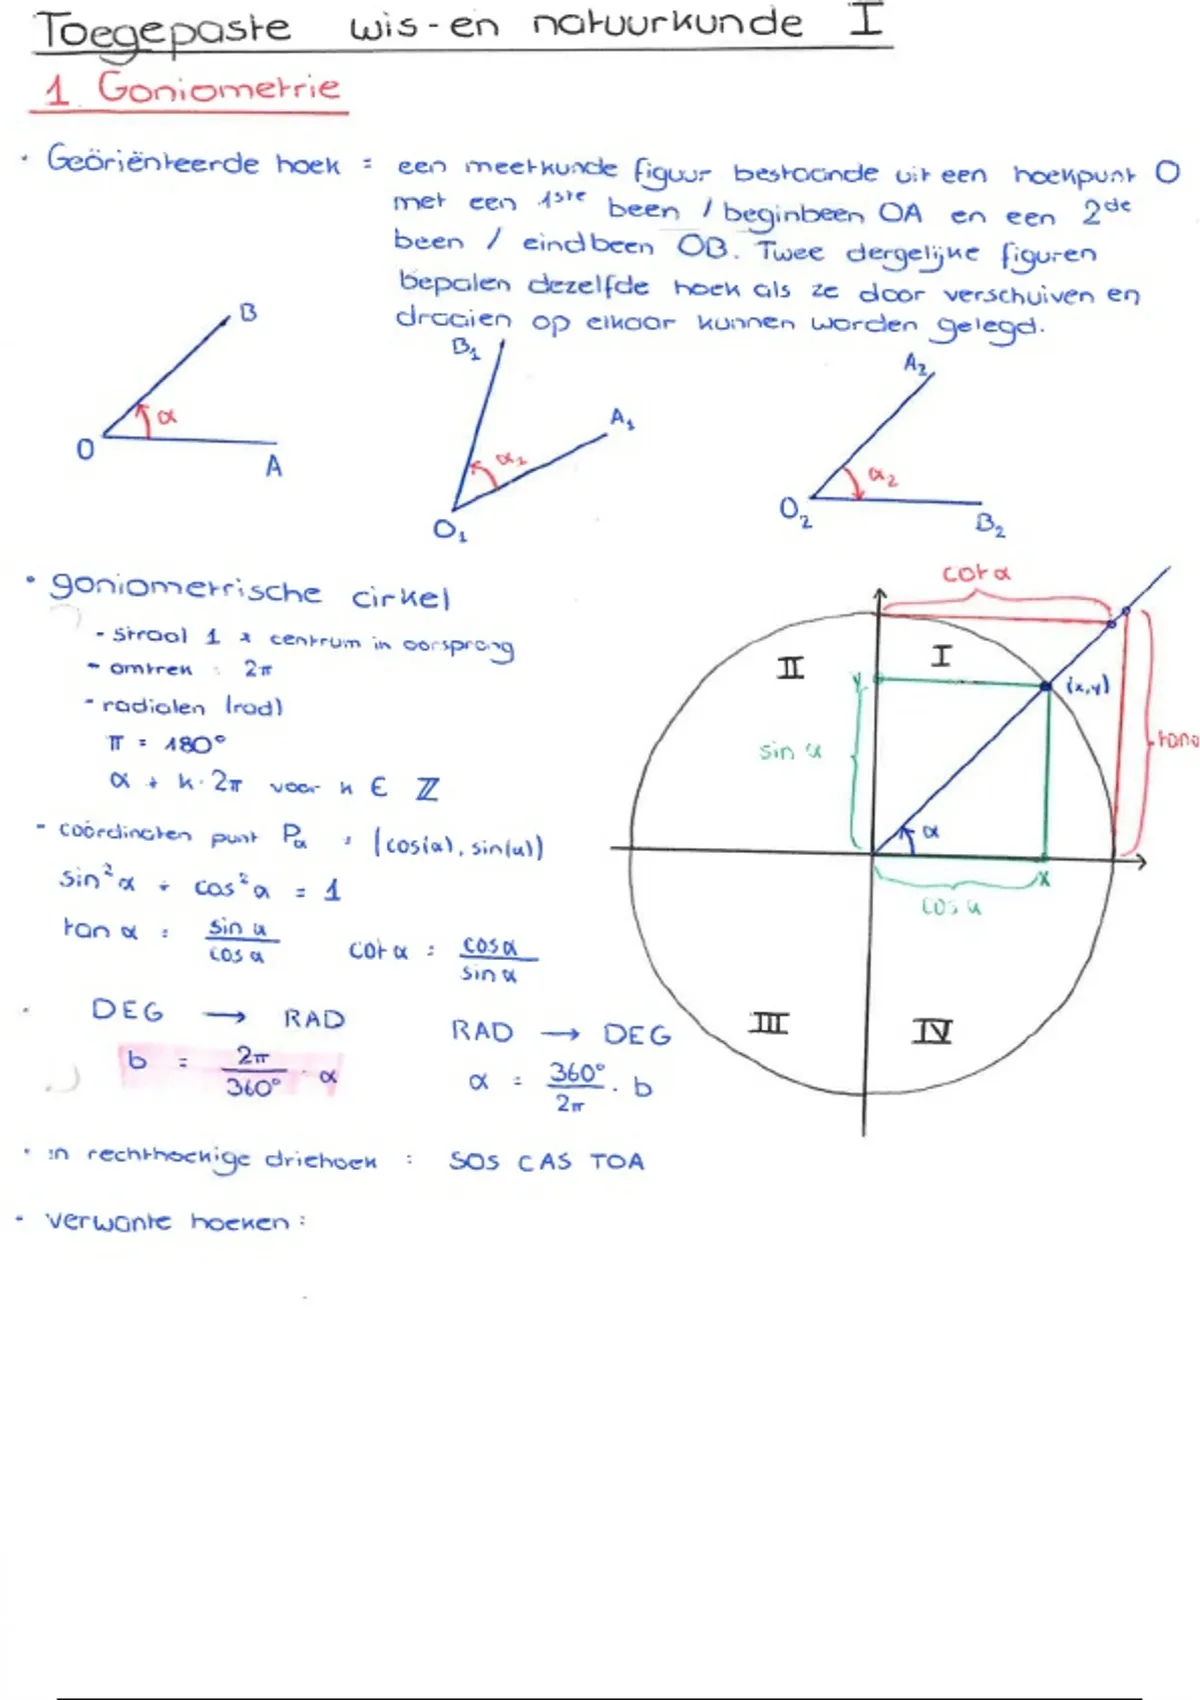 Toegepaste wis-en natuurkunde I
1 Goniometrie
• Geöriënteerde hoek = een meetkunde figuur bestaande uit een hoekpunt O
met een 1ste been / beginbeen OA en een 2de
been / eindbeen OB. Twee dergelijke figuren
bepalen dezelfde hoek als ze door verschuiven en
draaien op elkaar kunnen worden gelegd.
B
α
O
A
B₁
A₁
α₂
O₁
A₂
α₂
O₂
B₂
• goniometrische cirkel
- straal 1 & centrum in oorsprong
- omtrek : 2π
- radialen (rad)
π = 180°
α + k·2π voor k ∈ ℤ
- coördinaten punt Pα : (cos(α), sin(α))
sin²α + cos²α = 1
tan α = sin α / cos α cot α = cos α / sin α
cot α
II
I
y
(x,y)
sin α
tan α
α
x
cos α
III
IV
• DEG → RAD RAD → DEG
b = 2π / 360° · α α = 360° / 2π · b
• in rechthoekige driehoek : SOS CAS TOA
- verwante hoeken :